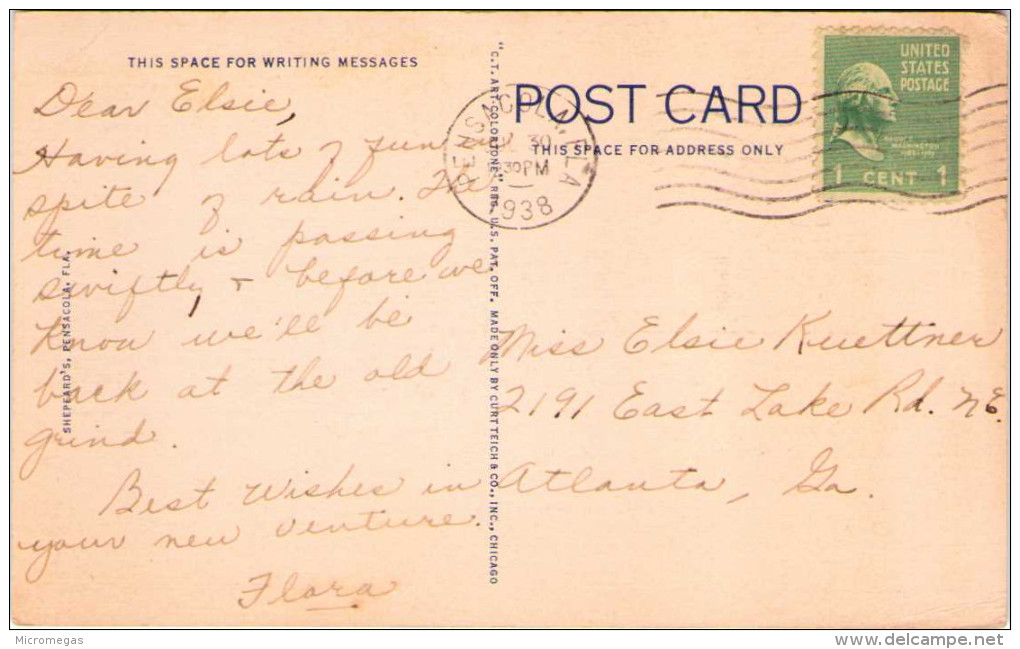 THIS SPACE FOR WRITING MESSAGES
Dear Elsie,
Having lots of fun in
spite of rain. The
time is passing
swiftly + before we
know we'll be
back at the old
grind.
Best Wishes in
your new venture.
Flora
SHEPEARD'S, PENSACOLA, FLA.
"C.T. ART-COLORTONE" REG. U.S. PAT. OFF. MADE ONLY BY CURT TEICH & CO., INC., CHICAGO
POST CARD
THIS SPACE FOR ADDRESS ONLY
PENSACOLA, FLA
30
30 PM
1938
UNITED
STATES
POSTAGE
WASHINGTON
1 CENT 1
Miss Elsie Kuettner
2191 East Lake Rd. NE.
Atlanta, Ga.
Micromegas
www.delcampe.net